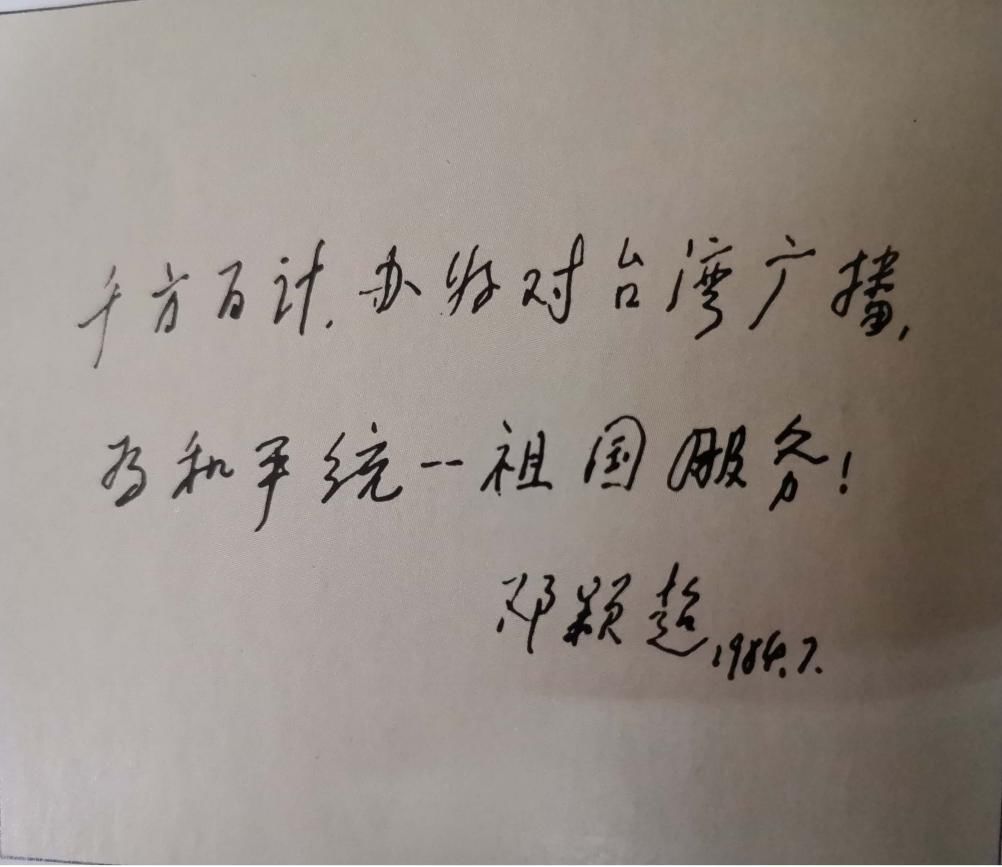 千方百计,办好对台湾广播,
为和平统一祖国服务!
邓颖超 1984.7.